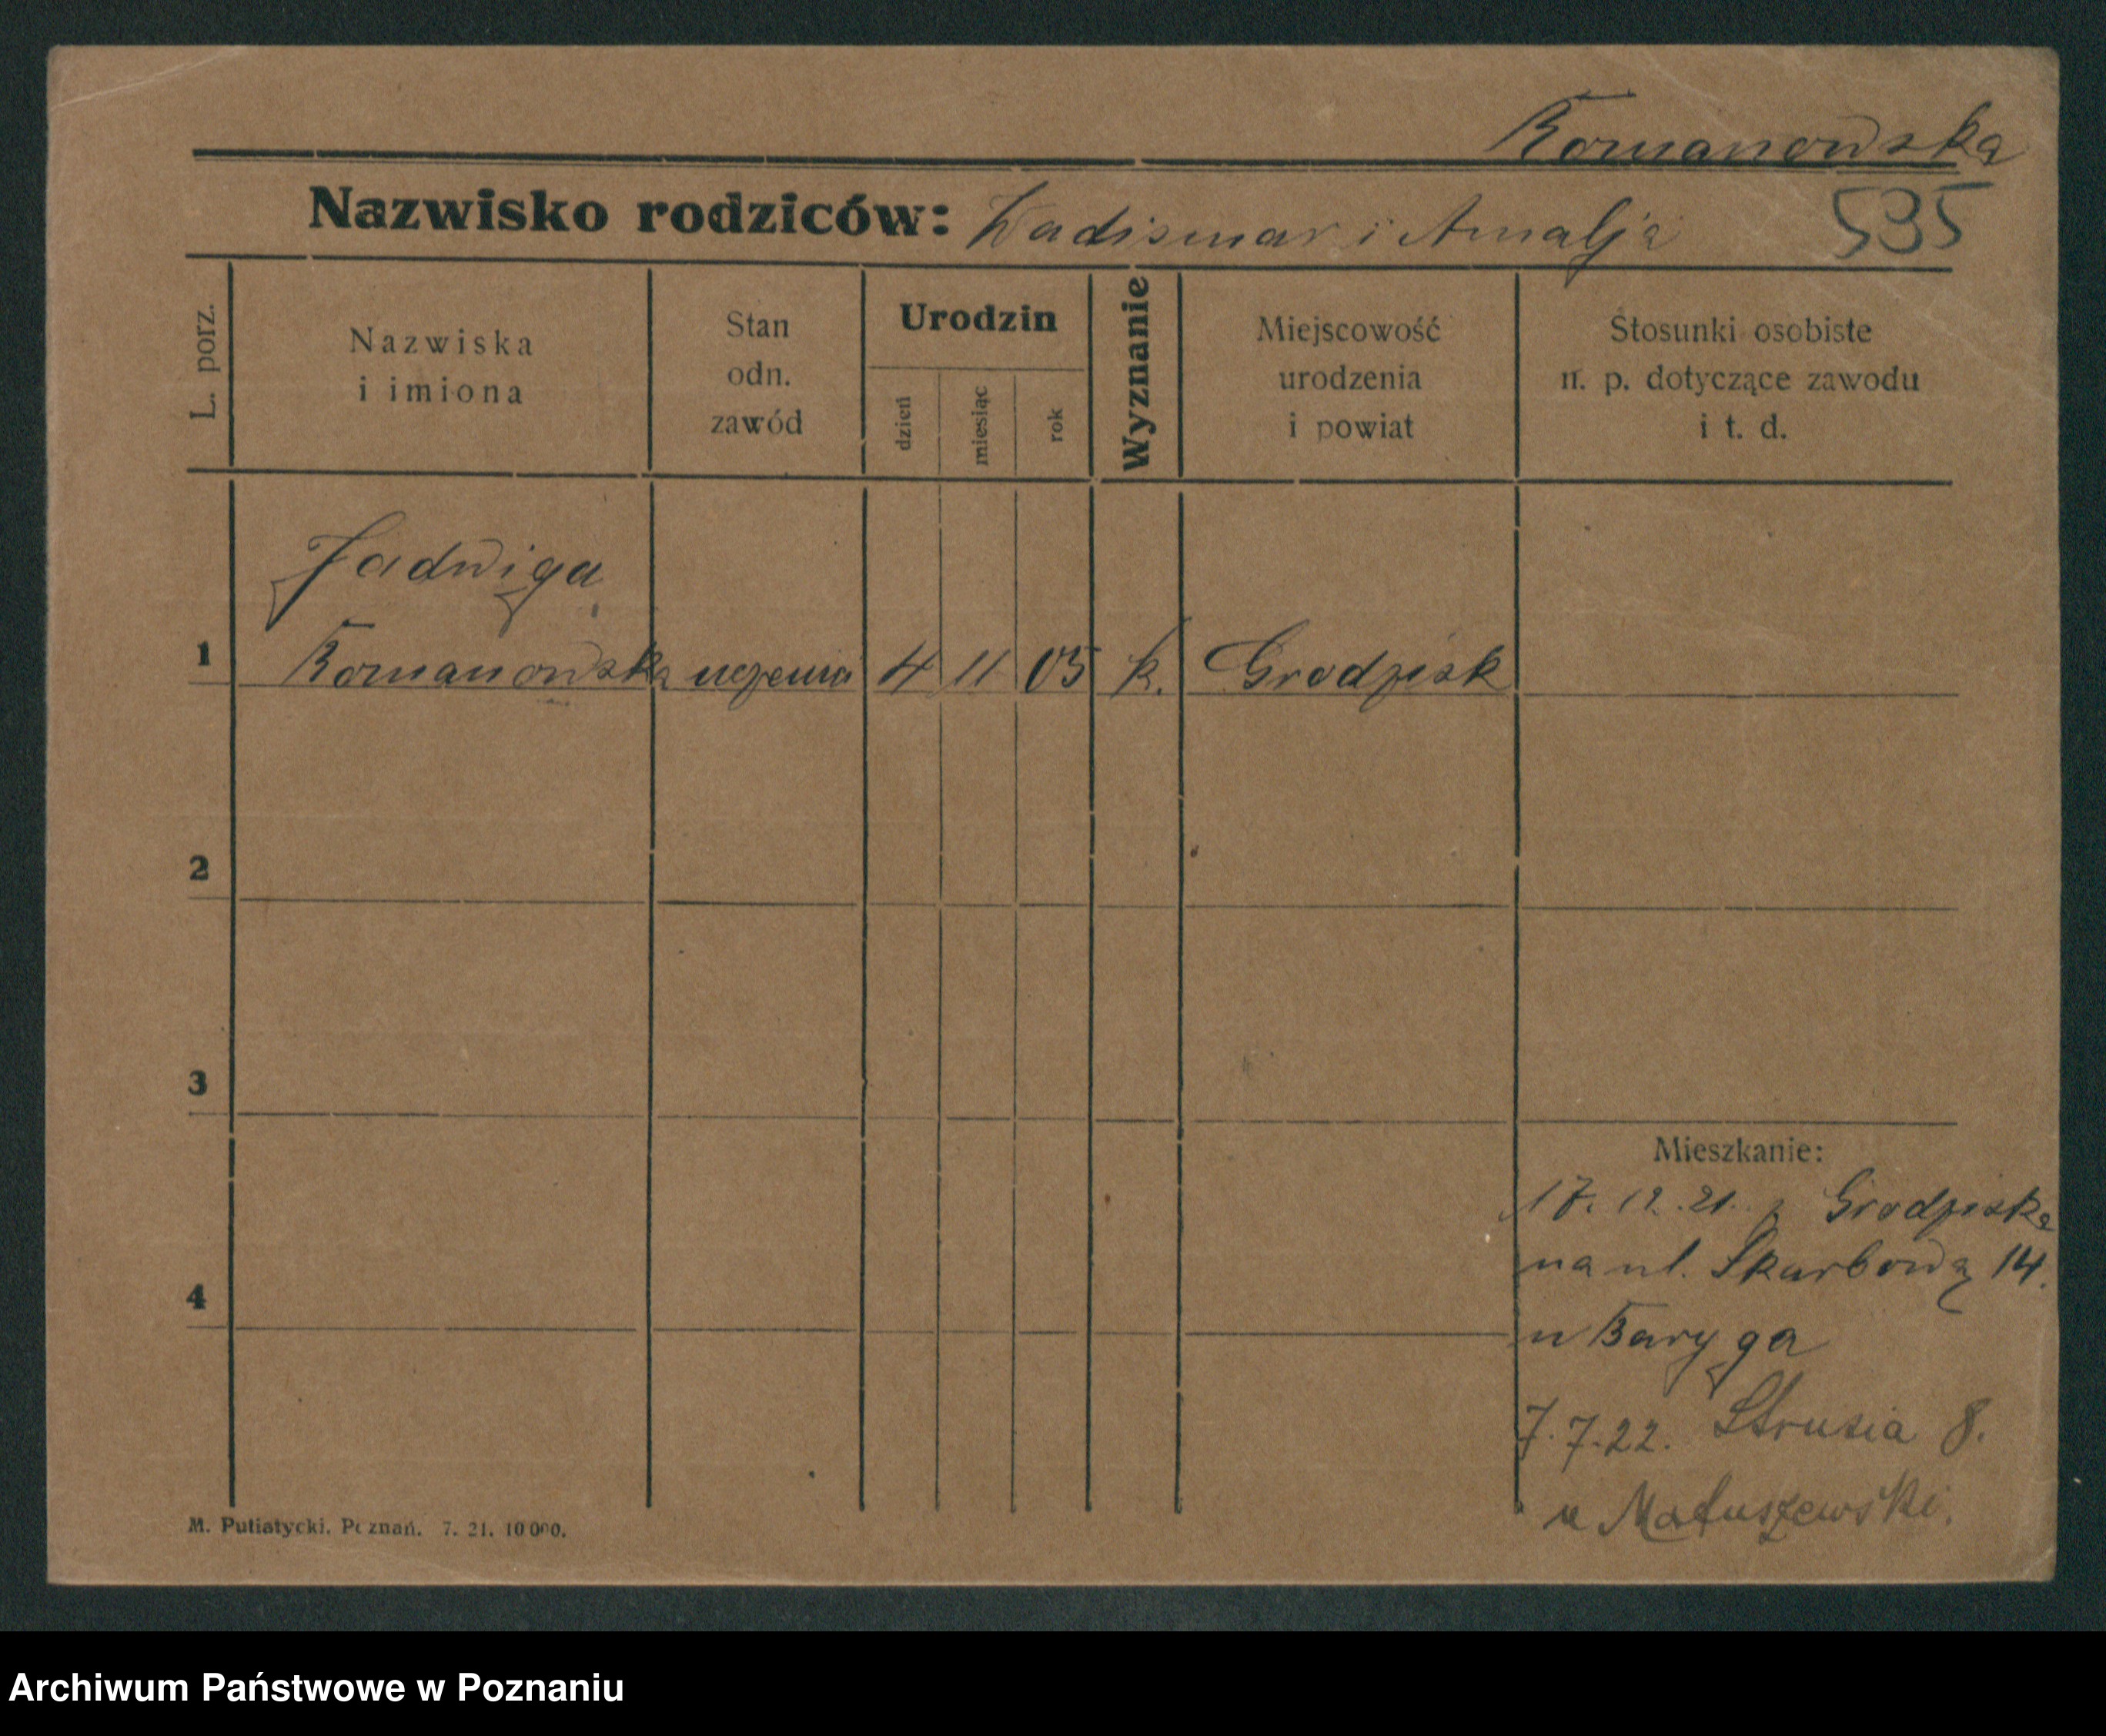 Romanowska
Nazwisko rodziców: Wadismar i Amalja 535
L. porz.
Nazwiska
i imiona
Stan
odn.
zawód
Urodzin
dzień
miesiąc
rok
Wyznanie
Miejscowość
urodzenia
i powiat
Stosunki osobiste
n. p. dotyczące zawodu
i t. d.
Jadwiga
1 Romanowska 4 11 05 k. Grodzisk
2
3
Mieszkanie:
17. 12. 21. z Grodziska
na ul. Skarbową 14.
4
u Baryga
7.7.22. Strusia 8.
u Matuszewski.
M. Putiatycki. Poznań. 7. 21. 10 000.
Archiwum Państwowe w Poznaniu